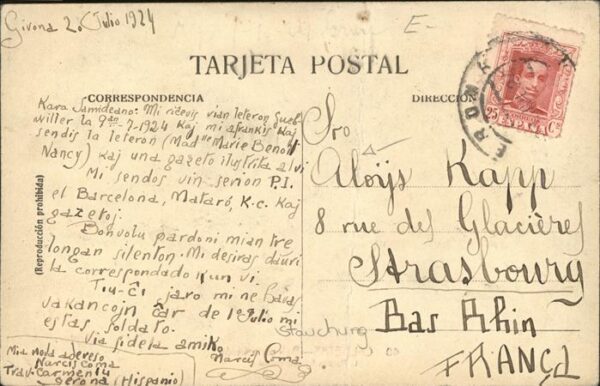 Girona 20 Julio 1924
E-
TARJETA POSTAL
CORRESPONDENCIA
DIRECCION
Kara Samideano: Mi ricevis vian leteron Gueb
willer la 9an-7-1924 kaj mi afrankis kaj
sendis la leteron (Madlle Marie Benoit
Nancy) kaj unu gazeto ilustrita al vi
Mi sendos vin serion P.I.
el Barcelona, Mataró, K.c. Kaj
gazetoj.
Bonvolu pardoni mian tre
longan silenton. Mi deziras dauri
la correspondado kun vi.
Tiu-ĉi jaro mi ne havas
vakancojn ĉar de 1º Julio mi
estas soldato.
Via fidela amiko
Narcis Comá
Mia nova adreso
Narcis Coma
Trav. Carmen 14
Gerona (Hispanio)
(Reproducción prohibida)
25 ESPAÑA Cs
Sro
Aloÿs Kapp
8 rue des Glacières
Strasbourg
Bas Rhin
FRANÇA